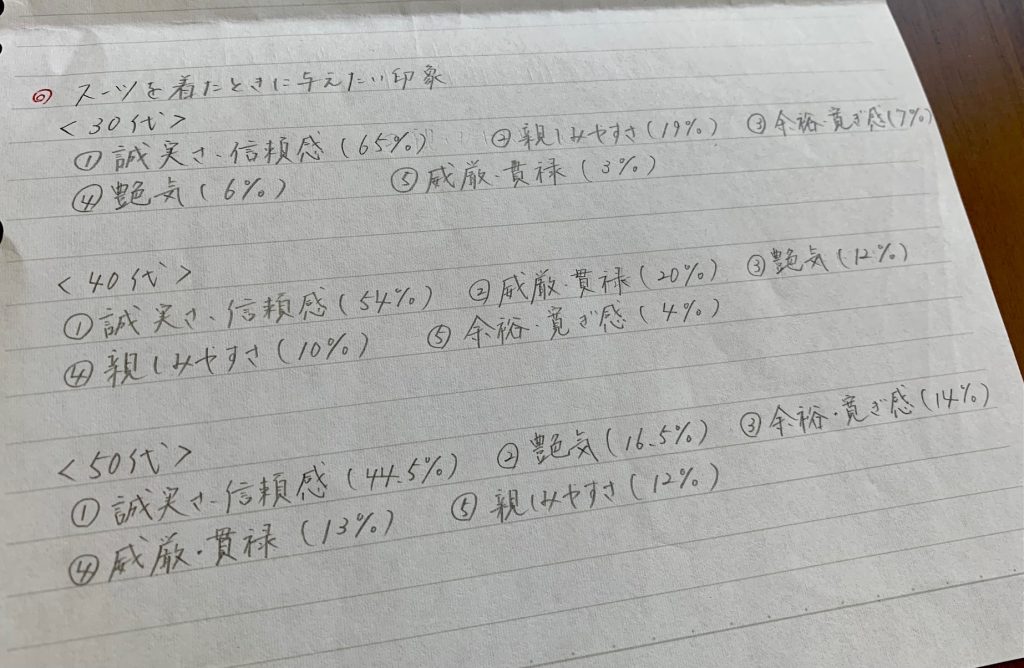 ◎ スーツを着たときに与えたい印象
<30代>
① 誠実さ・信頼感(65%) ② 親しみやすさ(19%) ③ 余裕・寛ぎ感(7%)
④ 艶気(6%) ⑤ 威厳・貫禄(3%)
<40代>
① 誠実さ・信頼感(54%) ② 威厳・貫禄(20%) ③ 艶気(12%)
④ 親しみやすさ(10%) ⑤ 余裕・寛ぎ感(4%)
<50代>
① 誠実さ・信頼感(44.5%) ② 艶気(16.5%) ③ 余裕・寛ぎ感(14%)
④ 威厳・貫禄(13%) ⑤ 親しみやすさ(12%)